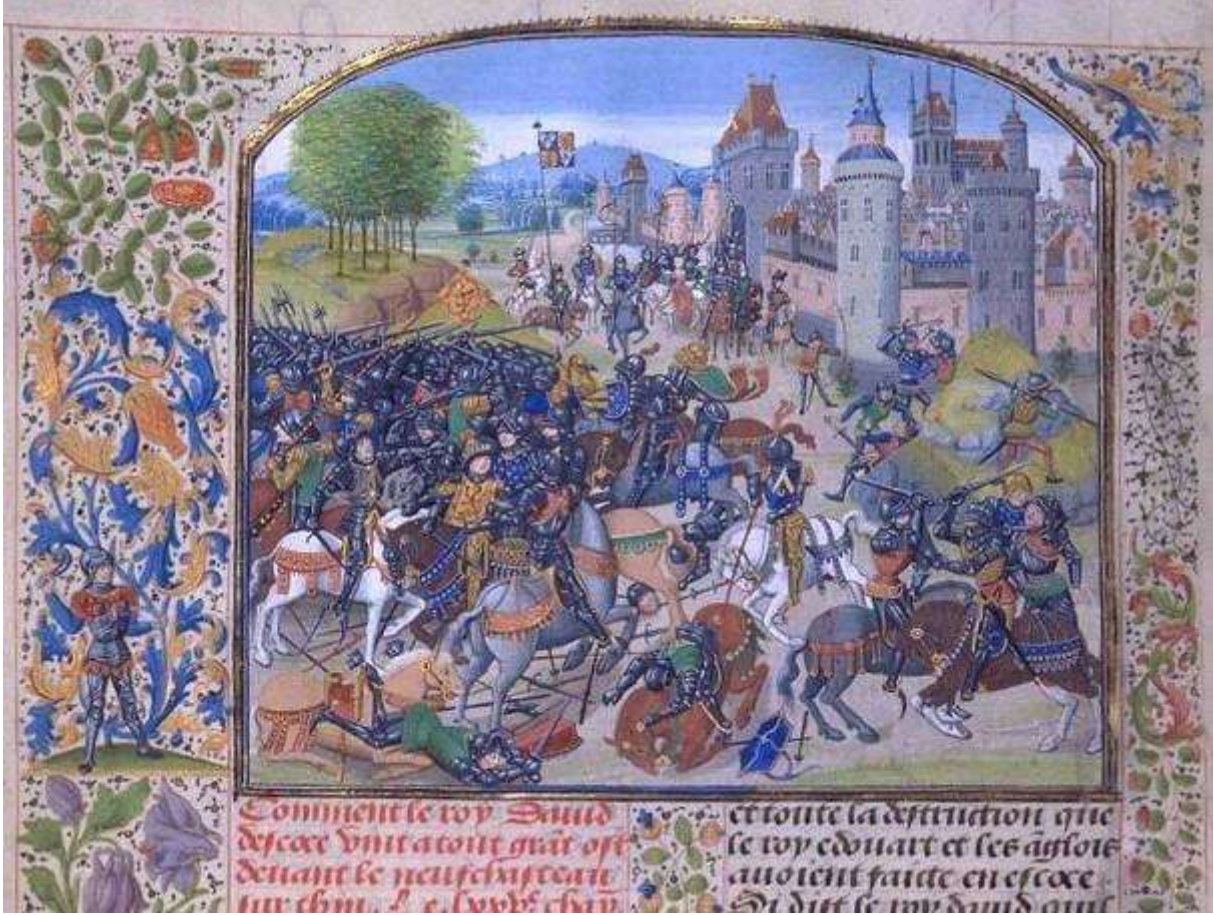 Comment le roy Dauid
descoce vint a tout grāt ost
deuant le neufchasteau
sur thin. &c. lxxve. chap.
et toute la destruction que
le roy edouart et les āglois
auoient faitte en escoce
Si dist le roy dauid quil